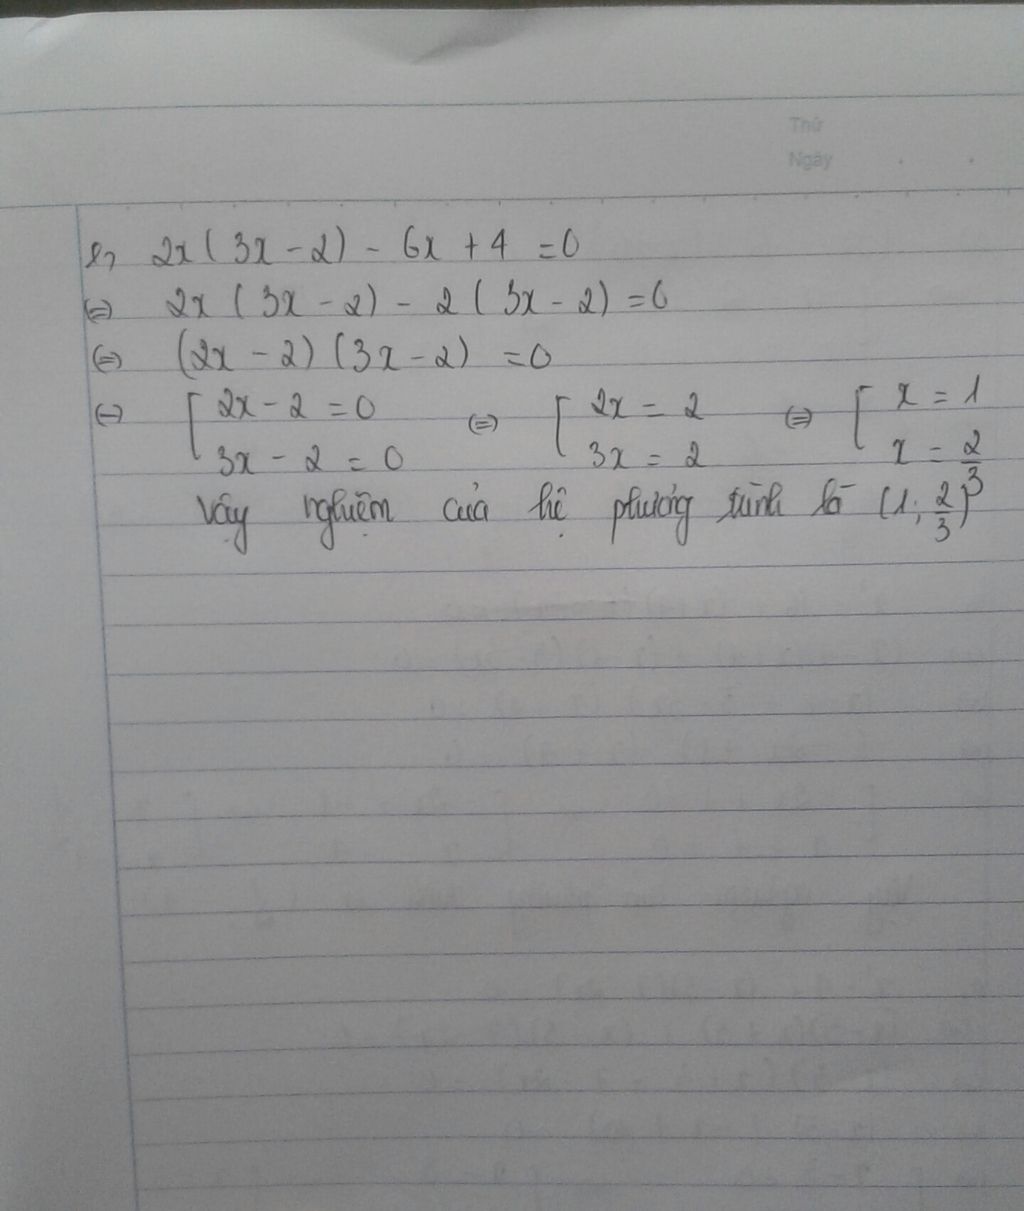 Thứ
Ngày
l, 2x(3x-2) - 6x + 4 = 0
⇔ 2x(3x-2) - 2(3x-2) = 0
⇔ (2x-2)(3x-2) = 0
⇔ [ 2x-2 = 0 ⇔ [ 2x = 2 ⇔ [ x = 1
3x-2 = 0 3x = 2 x = 2/3
Vậy nghiệm của hệ phương trình là (1; 2/3)